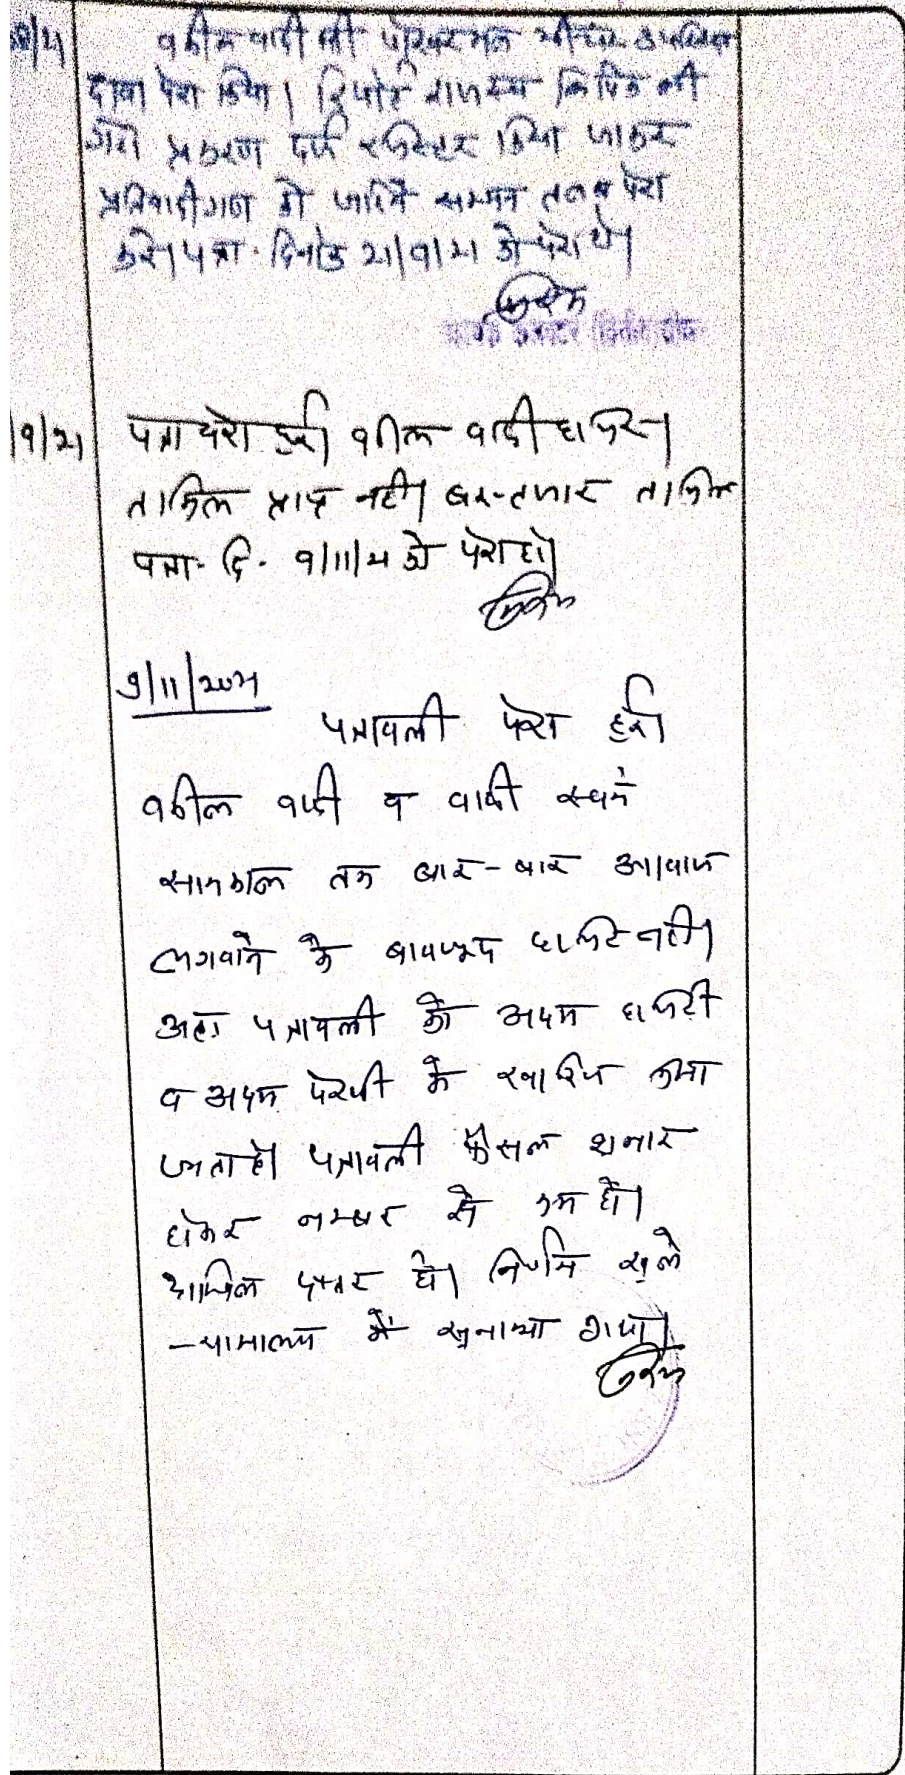 वकील वादी श्री उपस्थित
दावा पेश किया। रिपोर्ट की
गयी प्रकरण दर्ज रजिस्टर किया जाकर
प्रतिवादीगण को जरिये सम्मन तलब पेश
करे। पत्रा. दिनांक 21/9/21 को पेश हो।
/9/21 पत्रा पेश हुई। वकील वादी हाजिर।
तामिल प्राप्त नहीं। इन्तजार तामिल
पत्रा. दि. 9/11/21 को पेश हो।
9/11/2021
पत्रावली पेश हुई।
वकील वादी व वादी स्वयं
सायंकाल तक बार-बार आवाज
लगवाने के बावजूद हाजिर नहीं।
अतः पत्रावली को अदम हाजरी
व अदम पैरवी में खारिज किया
जाता है। पत्रावली फैसल शुमार
होकर नम्बर से कम हो।
दाखिल दफ्तर हो। निर्णय खुले
न्यायालय में सुनाया गया।